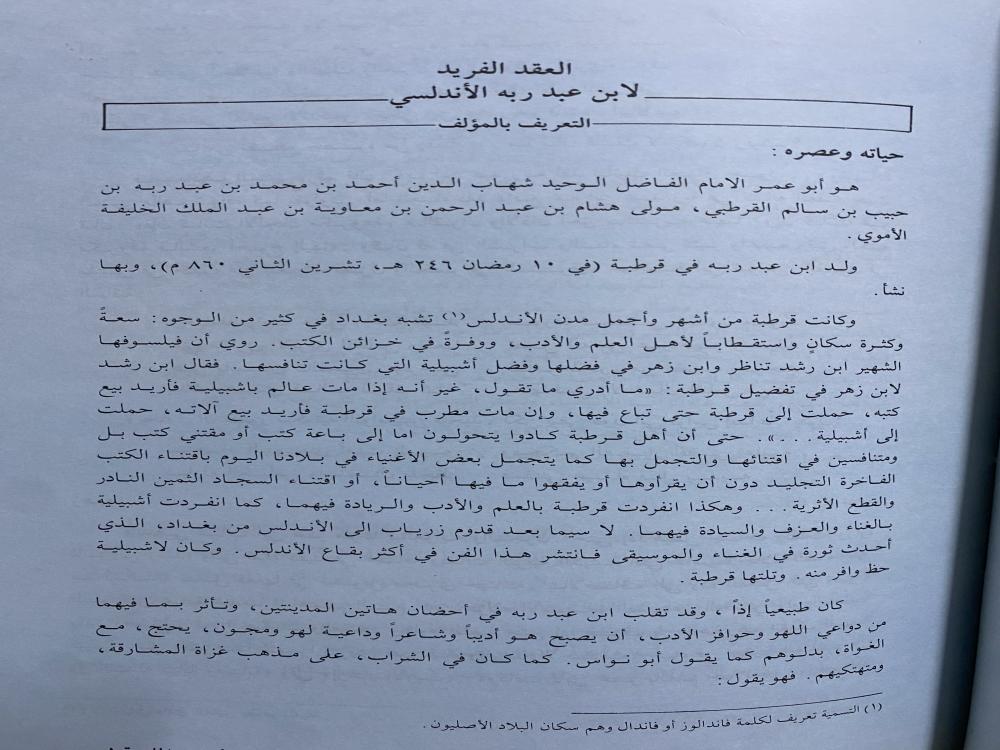 العقد الفريد
لابن عبد ربه الأندلسي
التعريف بالمؤلف
حياته وعصره :
هو أبو عمر الامام الفاضل الوحيد شهاب الدين أحمد بن محمد بن عبد ربه بن
حبيب بن سالم القرطبي، مولى هشام بن عبد الرحمن بن معاوية بن عبد الملك الخليفة
الأموي .
ولد ابن عبد ربه في قرطبة (في ١٠ رمضان ٢٤٦ هـ، تشرين الثاني ٨٦٠ م)، وبها
نشأ .
وكانت قرطبة من أشهر وأجمل مدن الأندلس(١) تشبه بغداد في كثير من الوجوه: سعةً
وكثرة سكانٍ واستقطاباً لأهل العلم والأدب، ووفرةً في خزائن الكتب. روي أن فيلسوفها
الشهير ابن رشد تناظر وابن زهر في فضلها وفضل أشبيلية التي كانت تنافسها. فقال ابن رشد
لابن زهر في تفضيل قرطبة: «ما أدري ما تقول، غير أنه إذا مات عالم باشبيلية فأريد بيع
كتبه، حملت إلى قرطبة حتى تباع فيها، وإن مات مطرب في قرطبة فأريد بيع آلاته، حملت
إلى أشبيلية . . .». حتى أن أهل قرطبة كادوا يتحولون اما إلى باعة كتب أو مقتني كتب بل
ومتنافسين في اقتنائها والتجمل بها كما يتجمل بعض الأغنياء في بلادنا اليوم باقتناء الكتب
الفاخرة التجليد دون أن يقرأوها أو يفقهوا ما فيها أحياناً، أو اقتناء السجاد الثمين النادر
والقطع الأثرية . . . وهكذا انفردت قرطبة بالعلم والأدب والريادة فيهما، كما انفردت أشبيلية
بالغناء والعزف والسيادة فيهما. لا سيما بعد قدوم زرياب الى الأندلس من بغداد، الذي
أحدث ثورة في الغناء والموسيقى فانتشر هذا الفن في أكثر بقاع الأندلس. وكان لاشبيلية
حظ وافر منه. وتلتها قرطبة .
كان طبيعياً إذاً ، وقد تقلب ابن عبد ربه في أحضان هاتين المدينتين، وتأثر بما فيهما
من دواعي اللهو وحوافز الأدب، أن يصبح هو أديباً وشاعراً وداعية لهو ومجون، يحتج، مع
الغواة، بدلوهم كما يقول أبو نواس. كما كان في الشراب، على مذهب غزاة المشارقة،
ومتهتكيهم. فهو يقول:
(١) التسمية تعريف لكلمة فاندالوز أو فاندال وهم سكان البلاد الأصليون .